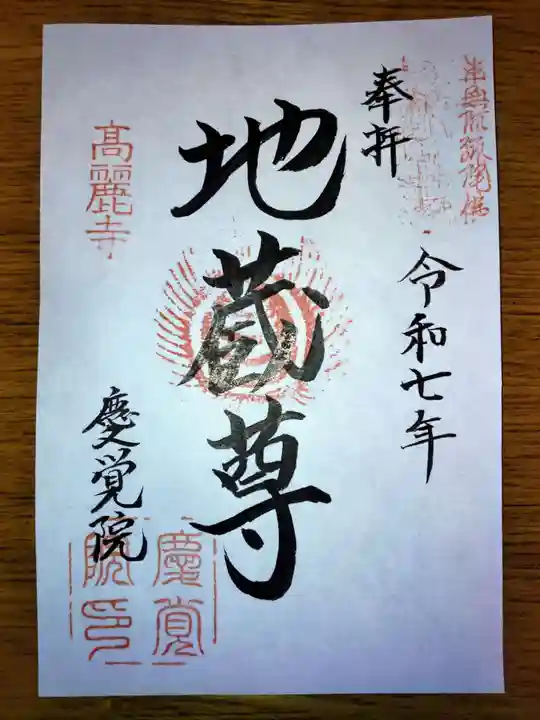 奉拝
令和七年
地蔵尊
慶覚院
高麗寺
慶覚
院印